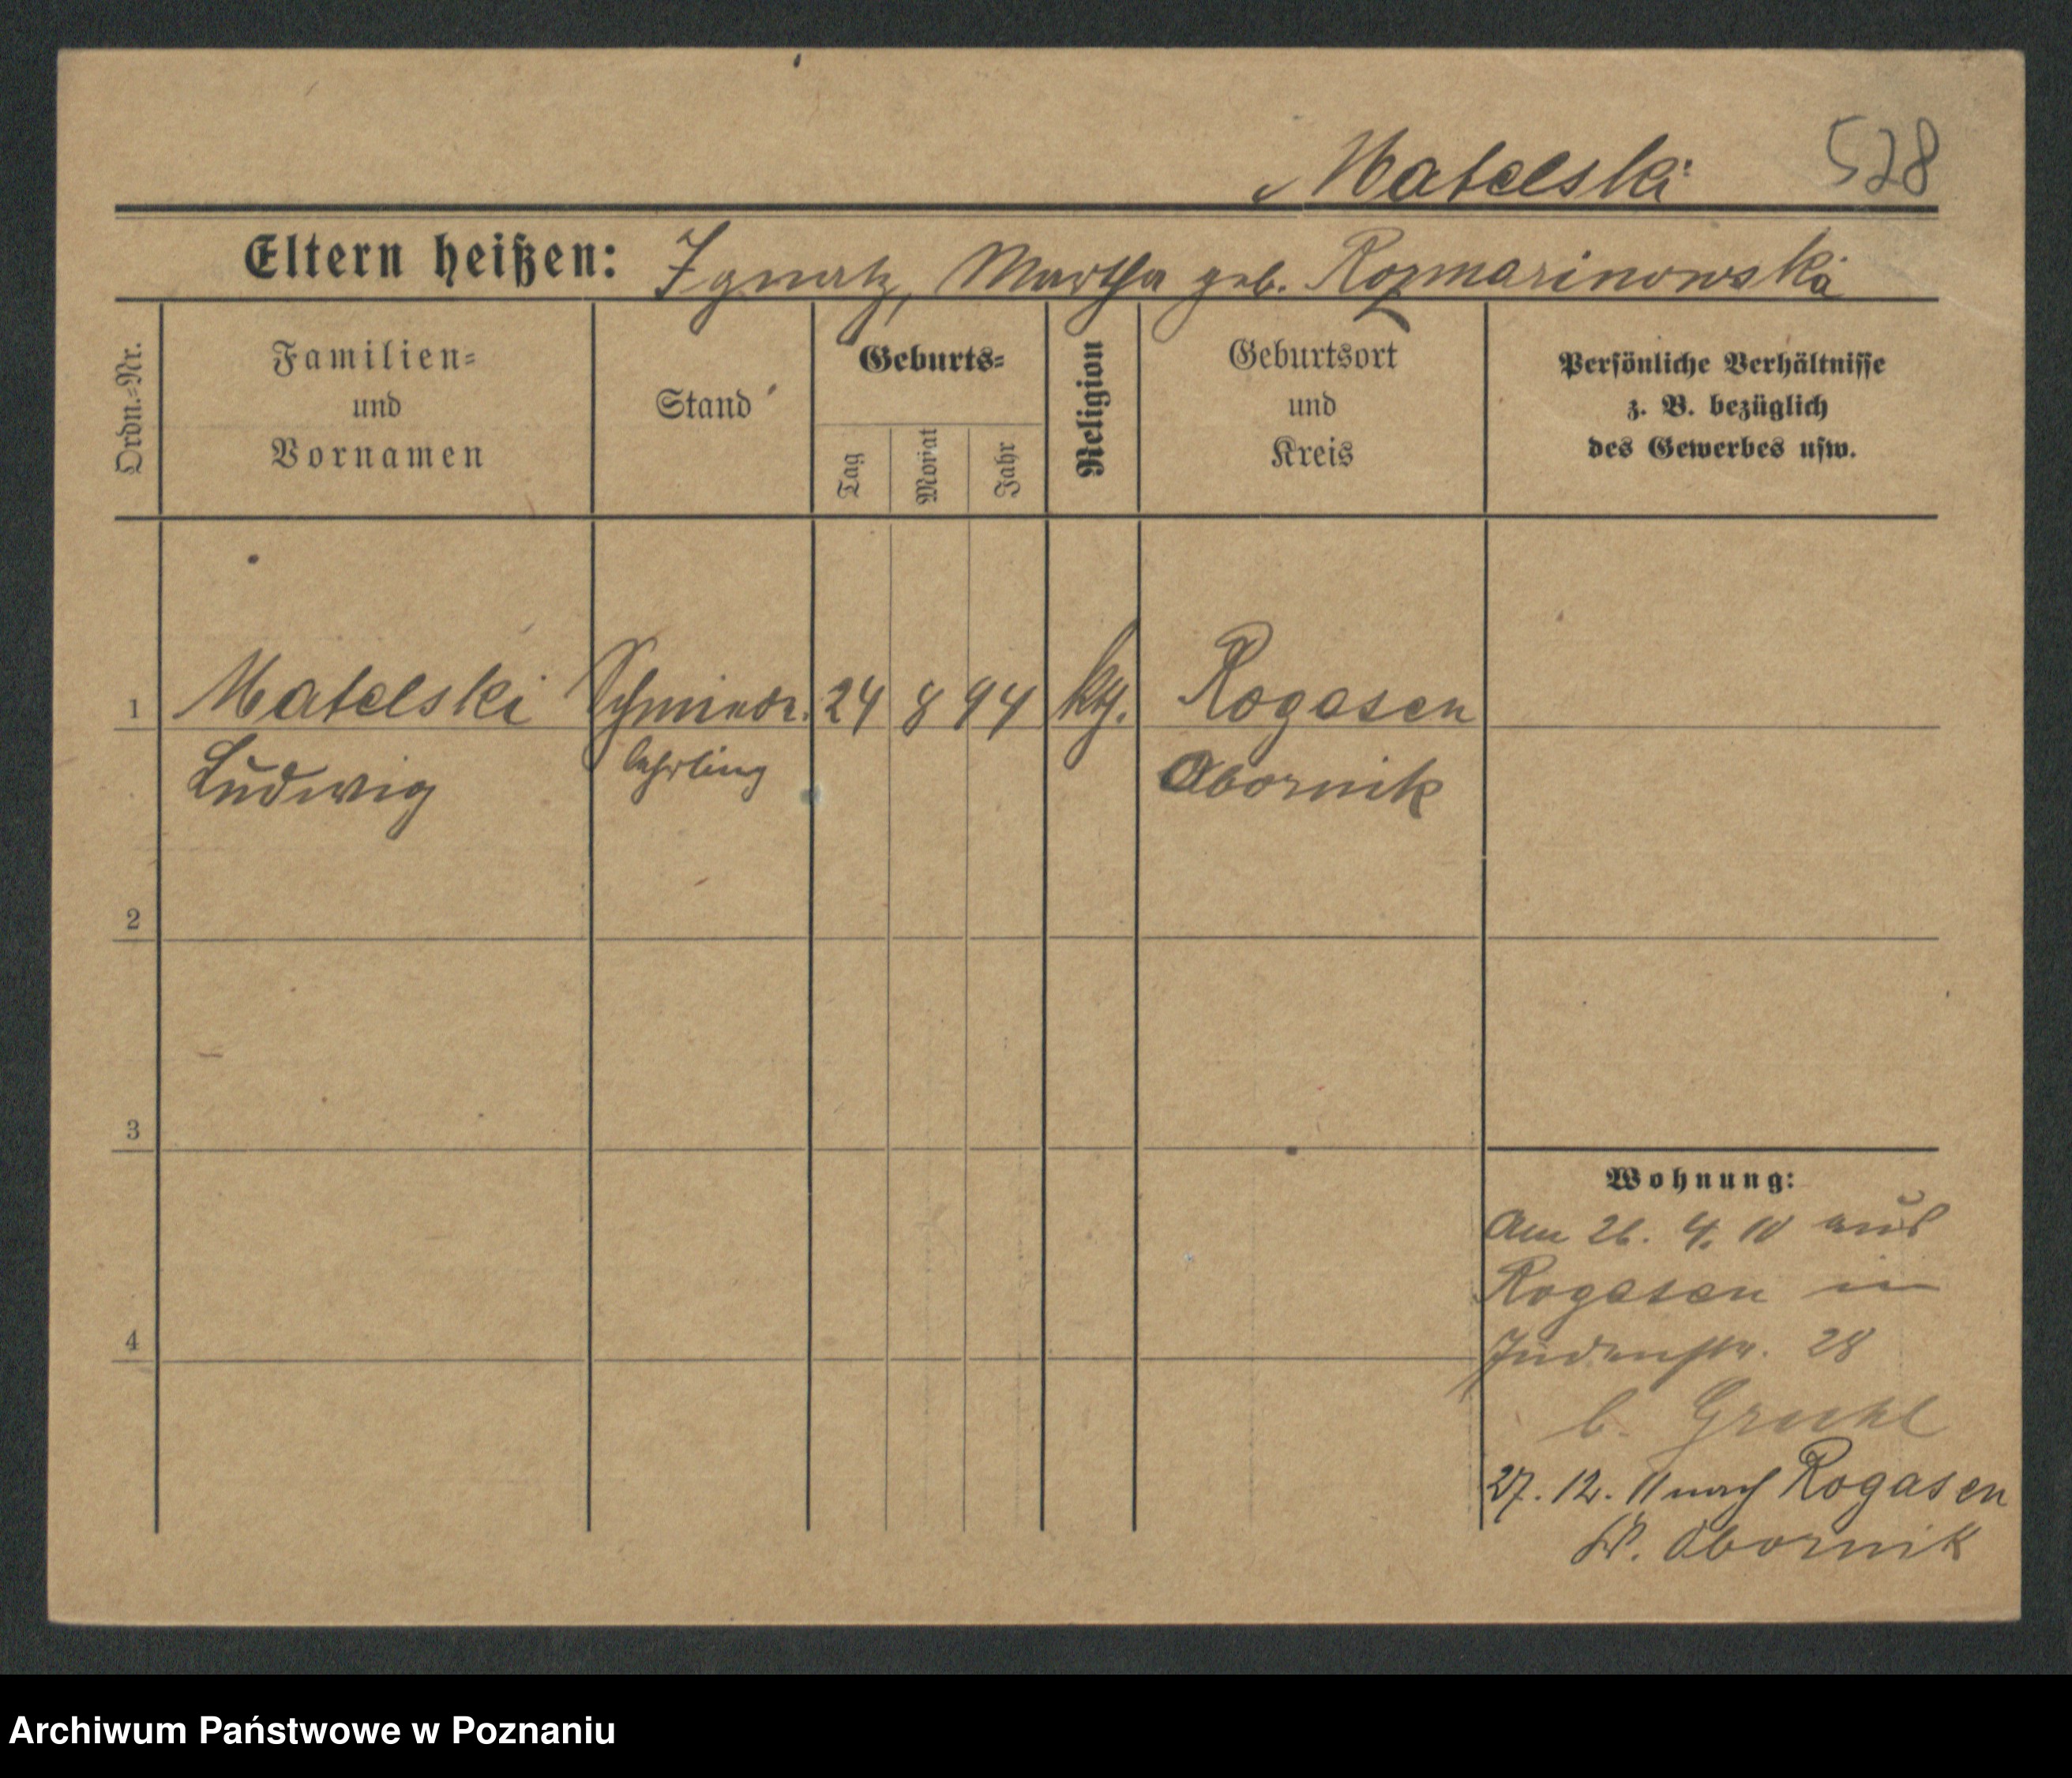 Matelski 528
Eltern heißen: Ignatz, Martha geb. Rozmarinowska
Ordn.-Nr.
Familien-
und
Vornamen
Stand
Geburts-
Tag
Monat
Jahr
Religion
Geburtsort
und
Kreis
Persönliche Verhältnisse
z. B. bezüglich
des Gewerbes usw.
1 Matelski Schmiede. 24 8 94 kth. Rogasen
Ludwig lehrling Obornik
2
3
4
Wohnung:
Am 26. 4. 10 aus
Rogasen in
Judenstr. 28
b. Gruhl
27. 12. 11 nach Rogasen
Kr. Obornik
Archiwum Państwowe w Poznaniu